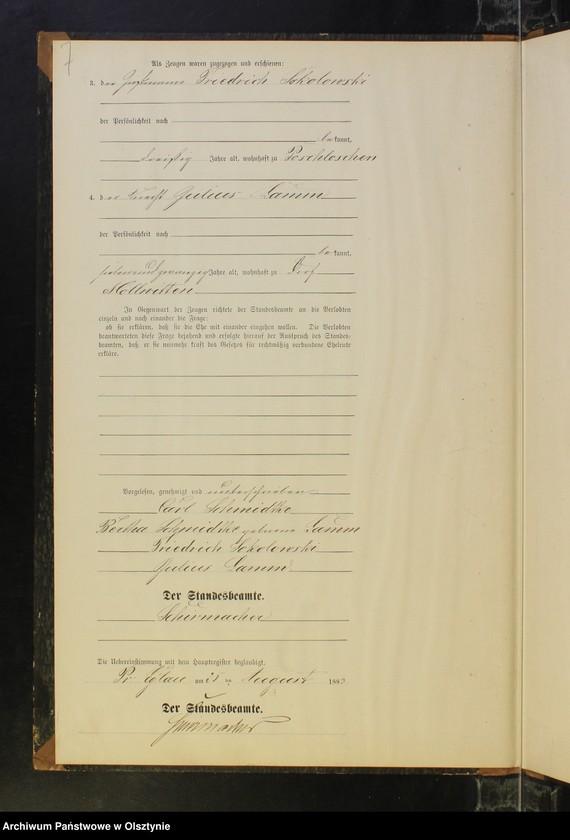 7
Als Zeugen waren zugezogen und erschienen:
3. der Friedrich Sokolowski
der Persönlichkeit nach
be kannt,
dreißig Jahre alt, wohnhaft zu Poschloschen
4. der Knecht Julius Lamm
der Persönlichkeit nach
be kannt,
siebenundzwanzig Jahre alt, wohnhaft zu Dorf
Mollwitten
In Gegenwart der Zeugen richtete der Standesbeamte an die Verlobten
einzeln und nach einander die Frage:
ob sie erklären, daß sie die Ehe mit einander eingehen wollen. Die Verlobten
beantworteten diese Frage bejahend und erfolgte hierauf der Ausspruch des Standes-
beamten, daß er sie nunmehr kraft des Gesetzes für rechtmäßig verbundene Eheleute
erkläre.
Vorgelesen, genehmigt und unterschrieben
Carl Schmidtke
Bertha Schmidtke geborene Lamm
Friedrich Sokolowski
Julius Lamm
Der Standesbeamte.
Schirmacher
Die Uebereinstimmung mit dem Hauptregister beglaubigt.
Pr. Eylau am 21 ten August 188
Der Standesbeamte.
Schirmacher
Archiwum Państwowe w Olsztynie